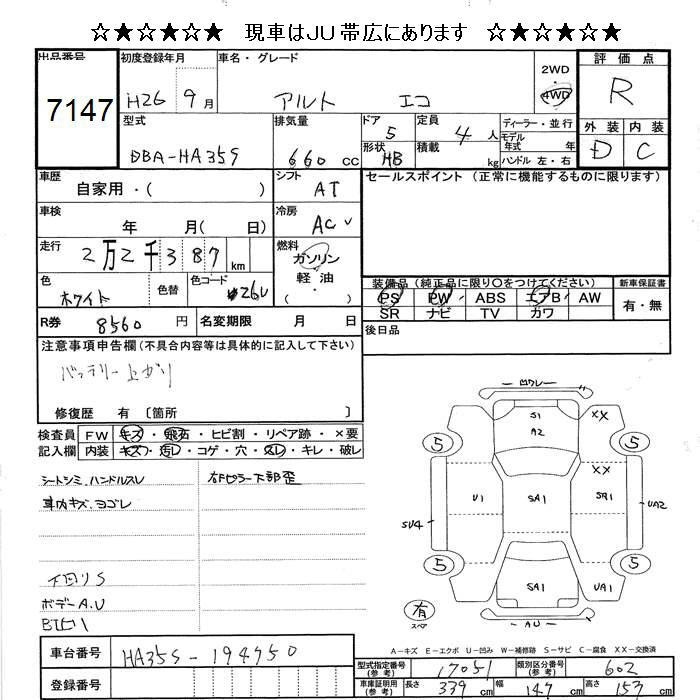 ☆★☆★☆★ 現車はJU帯広にあります ☆★☆★☆★
出品番号 7147
初度登録年月 H26 9月
車名・グレード アルト エコ
2WD 4WD
評価点 R
型式 DBA-HA35S
排気量 660cc
ドア 5
形状 HB
定員 4人
積載 kg
ディーラー・並行
モデル年式 年
ハンドル 左・右
外装 D
内装 C
車歴 自家用・( )
シフト AT
セールスポイント (正常に機能するものに限ります)
車検 年 月( 日)
冷房 AC
走行 2万2千387km
燃料 ガソリン 軽油・
色 ホワイト
色替
色コード 26U
装備品(純正品に限り○をつけてください)
PS PW ABS エアB AW
SR ナビ TV カワ
新車保証書 有・無
R券 8560円
名変期限 月 日
後日品
注意事項申告欄(不具合内容等は具体的に記入して下さい)
バッテリー上がり
修復歴 有 〔箇所 〕
検査員記入欄
FW キズ・飛石・ヒビ割・リペア跡・×要
内装 キズ・汚レ・コゲ・穴・スレ・キレ・破レ
シートシミ.ハンドルスレ
車内キズ.ヨゴレ
右Fピラー下部歪
下回りS
ボデーA.U
凹ワレ
S1
A2
XX
5
5
XX
U1
SA1
SA1
UA2
SU4
5
5
SA1
UA1
AU
有
スペア
A−キズ E−エクボ U−凹み W−補修跡 S−サビ C−腐食 XX−交換済
車台番号 HA35S-194950
登録番号
型式指定番号(参考) 17051
類別区分番号(参考) 602
車庫証明用(参考) 長さ 339cm 幅 147cm 高さ 153cm